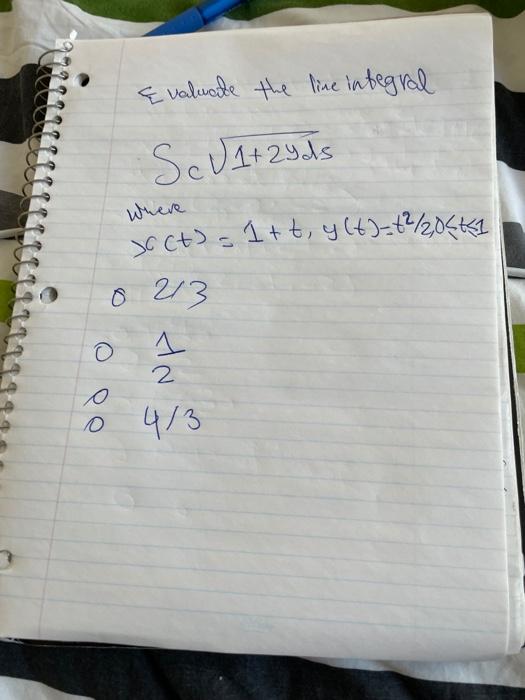 Evaluate the line integral
∫c √1+2y ds
where
x(t) = 1+t, y(t)=t²/2, 0≤t≤1
○ 2/3
○ 1/2
○
○ 4/3